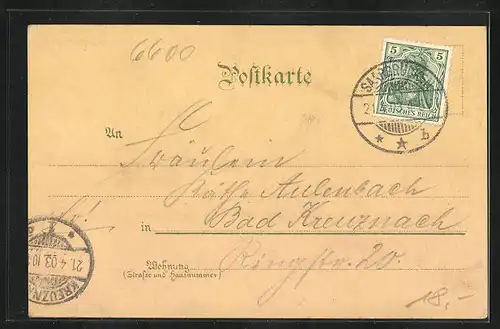 6600
Postkarte
5 5
DEUTSCHES REICH
SAARBRÜCKEN
b
An
Fräulein
Käthe Aulenbach
in Bad Kreuznach
Wohnung Ringstr. 20.
(Straße und Hausnummer)
21.4.03.10
KREUZN
18,-